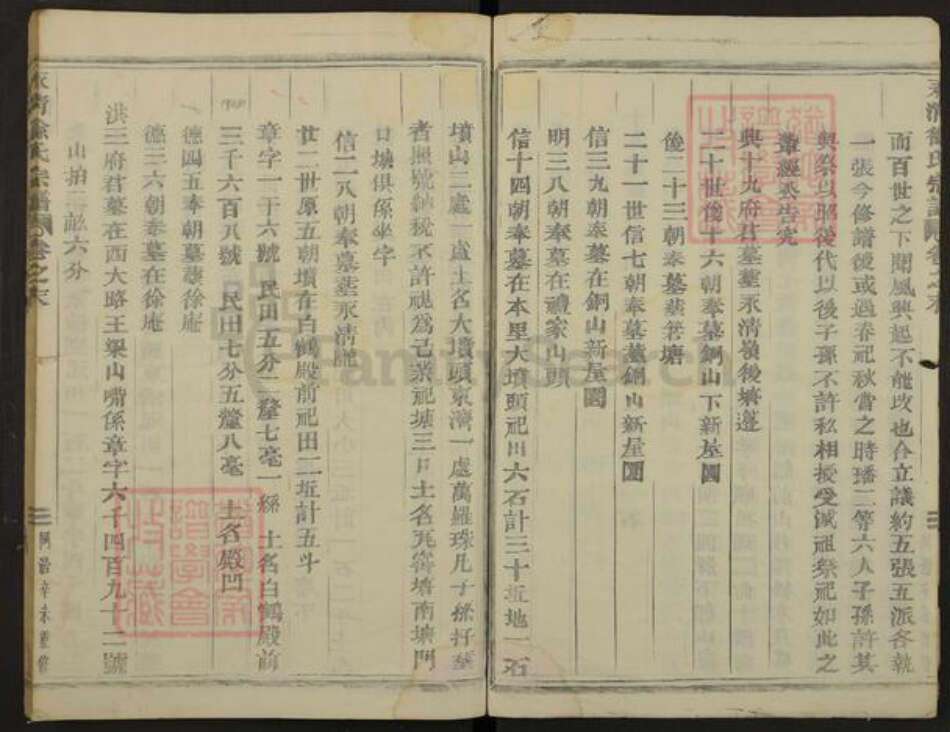 而百世之下聞風興起不能改也合立議約五張五派各執
一張今修譜後或過春祀秋嘗之時璠二等六人子孫許其
與祭以昭後代以後子孫不許私相授受滅祖祭祀如此之
興十九府君墓葬永清嶺後塘邊
二十世俊十六朝奉墓銅山下新屋園
俊二十三朝奉墓葬箬塘
二十一世信七朝奉墓葬銅山新屋園
信三九朝奉墓在銅山新屋園
明三八朝奉墓在禮家山頭
信十四朝奉墓在本里大墳頭祀田六石計三十坵地一石
墳山二處一處土名大墳頭東灣一處萬羅珠凡子孫扦葬
者照號納稅不許視為己業祀塘三口土名瓦窰塘南塘門
口塘俱係坐字
信二八朝奉墓葬永清嶺
廿二世原五朝墳在白鶴殿前祀田二坵計五斗
章字一千六號 民田五分二釐七毫一絲 土名白鶴殿前
三千六百八號 民田七分五釐八毫 土名殿凹
德四五奉朝墓葬徐庵
德三六朝奉墓在徐庵
洪三府君墓在西大路王梁山嘴係章字六千四百九十二號
山拍二畝六分
永清徐氏宗譜 卷之末